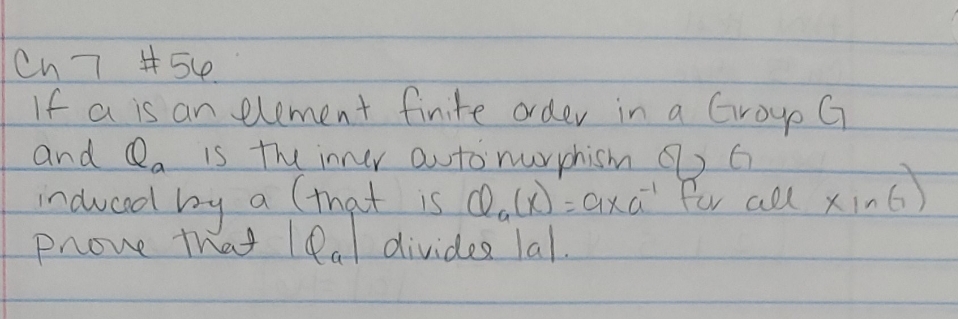 Ch 7 #56.
If a is an element finite order in a Group G
and φₐ is the inner automorphism of G
induced by a (that is φₐ(x) = axa⁻¹ for all x in G)
prove that |φₐ| divides |a|.